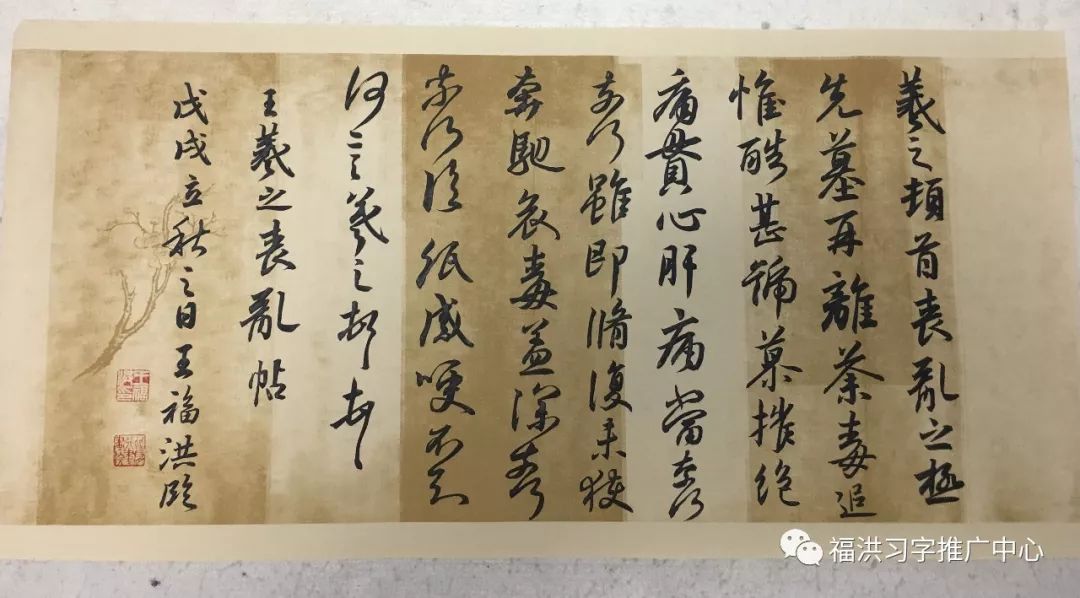 羲之頓首喪亂之極
先墓再離荼毒追
惟酷甚號慕摧絕
痛貫心肝痛當奈何
奈何雖即脩復未獲
奔馳哀毒益深奈何
奈何臨紙感哽不知
何言羲之頓首頓首
王羲之喪亂帖
戊戌立秋之日王福洪臨
福洪习字推广中心